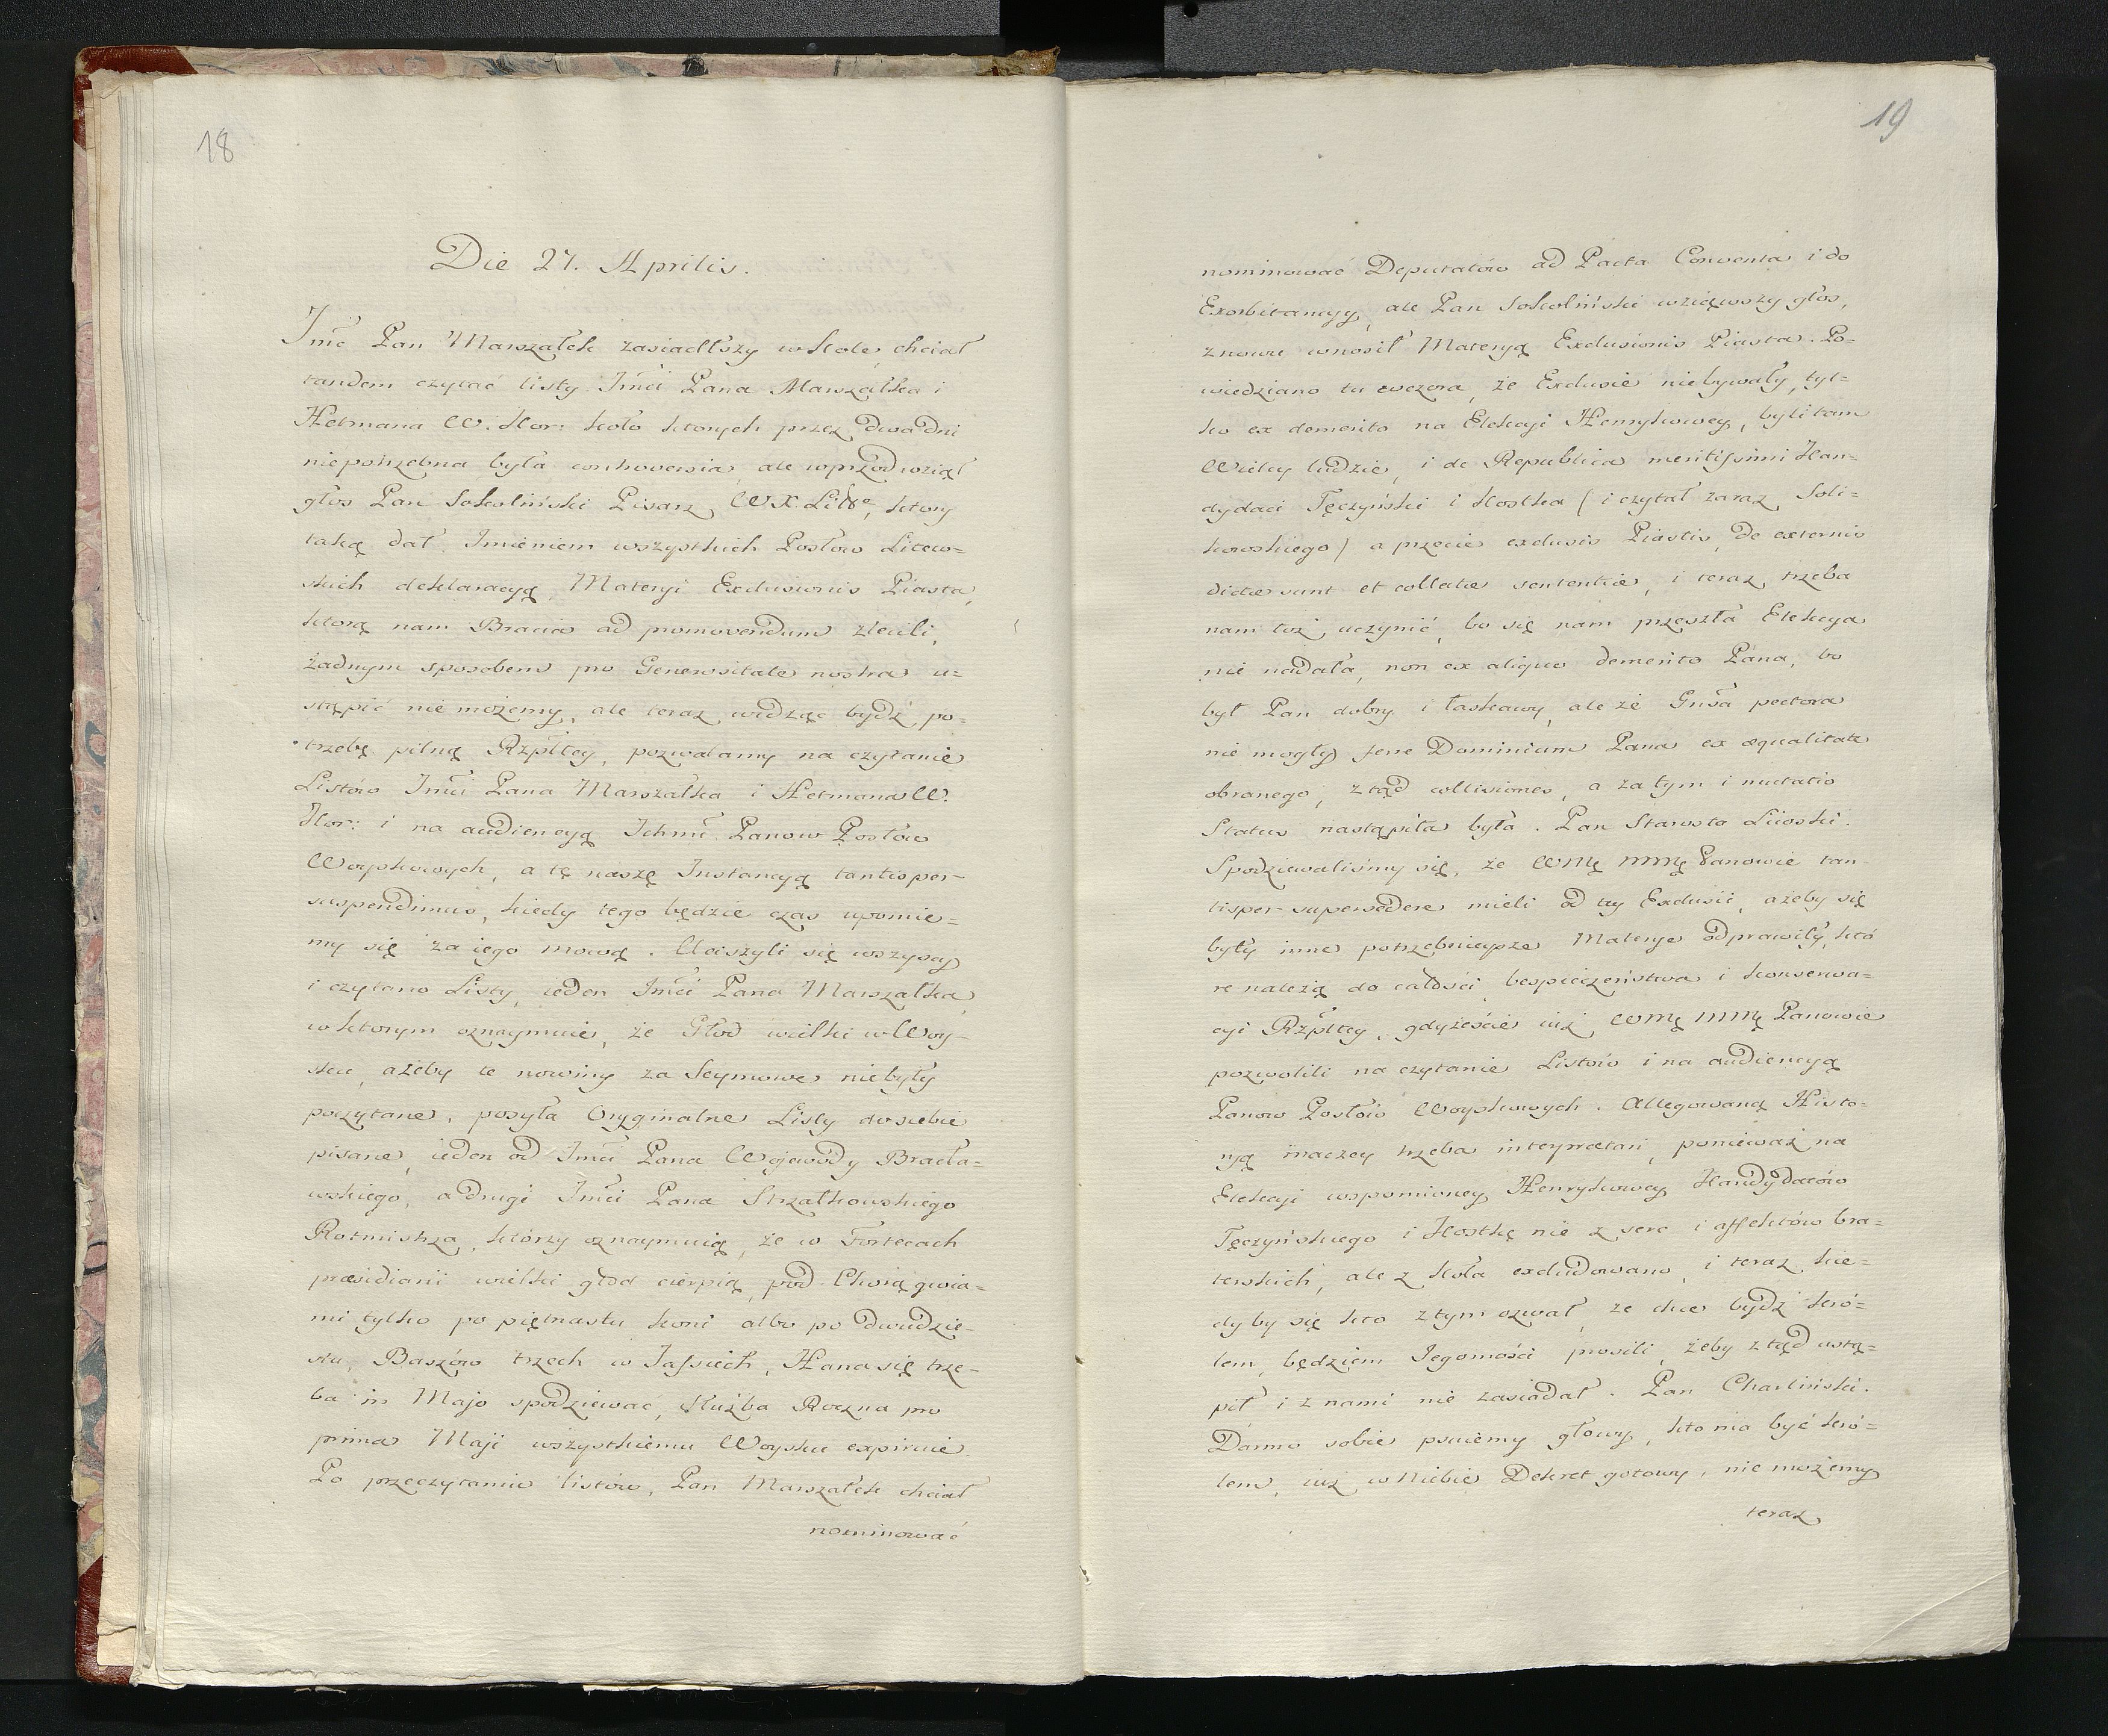 18
Die 27. Aprilis.
Jmć Pan Marszałek zasiadłszy w Kole, chciał
tandem czytać listy Jmći Pana Marszałka i
Hetmana W. Kor: koło ktorych przez dwa dni
niepotrzebna była controversia, ale wprzod wziął
głos Pan Sokoliński Pisarz W. X. Litt°, ktory
taką dał Imieniem wszystkich Posłow Litew=
skich deklaracyą, Materyi Exclusionis Piasta,
ktorą nam Bracia ad promovendum zlecili,
żadnym sposobem pro Generositate nostra u=
stąpić nie możemy, ale teraz widząc bydź po=
trzebę pilną Rzpltey, pozwalamy na czytanie
Listów Jmći Pana Marszałka i Hetmana W.
Kor: i na audiencyą Ichmć Panow Posłow
Woyskowych, a tę naszę Instancyą tantisper
suspendimus, kiedy tego będzie czas upomie=
my się za iego mową. Uciszyli się wszyscy
i czytano Listy, ieden Jmći Pana Marszałka,
w ktorym oznaymuie, że Głod wielki w Woy=
sku, ażeby te nowiny za Seymowe niebyły
poczytane, posyła Oryginalne Listy do siebie
pisane, ieden od Jmći Pana Wojewody Bracła=
wskiego, a drugi Jmći Pana Strzałkowskiego
Rotmistrza, ktorzy oznaymuią, że w Fortecach
præsidiarii wielki głod cierpią, pod Chorągwia=
mi tylko po piętnastu koni albo po dwudzie=
stu, Baszów trzech w Jassiech, Hana się trze=
ba in Majo spodziewać, Służba Roczna pro
prima Maji wszystkiemu Woysku expiruie.
Po przeczytaniu listów, Pan Marszałek chciał
nominować
19
nominować Deputatów ad Pacta Conventa i do
Exorbitancyy, ale Pan Sokoliński wziąwszy głos,
znowu wnosił Materyą Exclusionis Piasta. Po=
wiedziano tu wczora, że Exclusie niebywały, tyl=
ko ex demerito na Elekcyi Henrykowey, byli tam
Wielcy ludzie, i de Republica meritissimi Kan=
dydaci Tęczyński i Kostka (i czytał zaraz Soli=
kowskiego) a przecie exclusis Piastis, de externis
dictæ sunt et collatæ sententiæ, i teraz trzeba
nam toż uczynić, bo się nam przeszła Elekcya
nie nadała, non ex aliquo demerito Pana, bo
był Pan dobry i łaskawy, ale że Gnsa pectora
nie mogły ferre Dominium Pana ex æqualitate
obranego, ztąd collisiones, a zatym i mutatio
Status nastąpiła była. Pan Starosta Liwski.
Spodziewaliśmy się, że WMę MMę Panowie tan=
tisper supersedere mieli od tey Exclusii, ażeby się
były inne potrzebnieysze Materye odprawiły, któ
re należą do całości, bespieczeństwa i konserwa=
cyi Rzpltey, gdyżeście iuż WMę MMę Panowie
pozwolili na czytanie Listów i na audiencyą
Panow Posłow Woyskowych. Allegowaną Histo=
ryą inaczey trzeba interpretari, ponieważ na
Elekcyi wspomioney Henrykowey Kandydatów
Tęczyńskiego i Kostkę nie z serc i affektów bra=
terskich, ale z Koła excludowano, i teraz kie=
dy by się kto z tym ozwał, że chce bydź kró=
lem, będziem Jegomości prosili, żeby ztąd ustą=
pił i z nami nie zasiadał. Pan Charliński.
Darmo sobie psuiemy głowy, kto ma być kró=
lem, iuż w Niebie Dekret gotowy, nie możemy
teraz